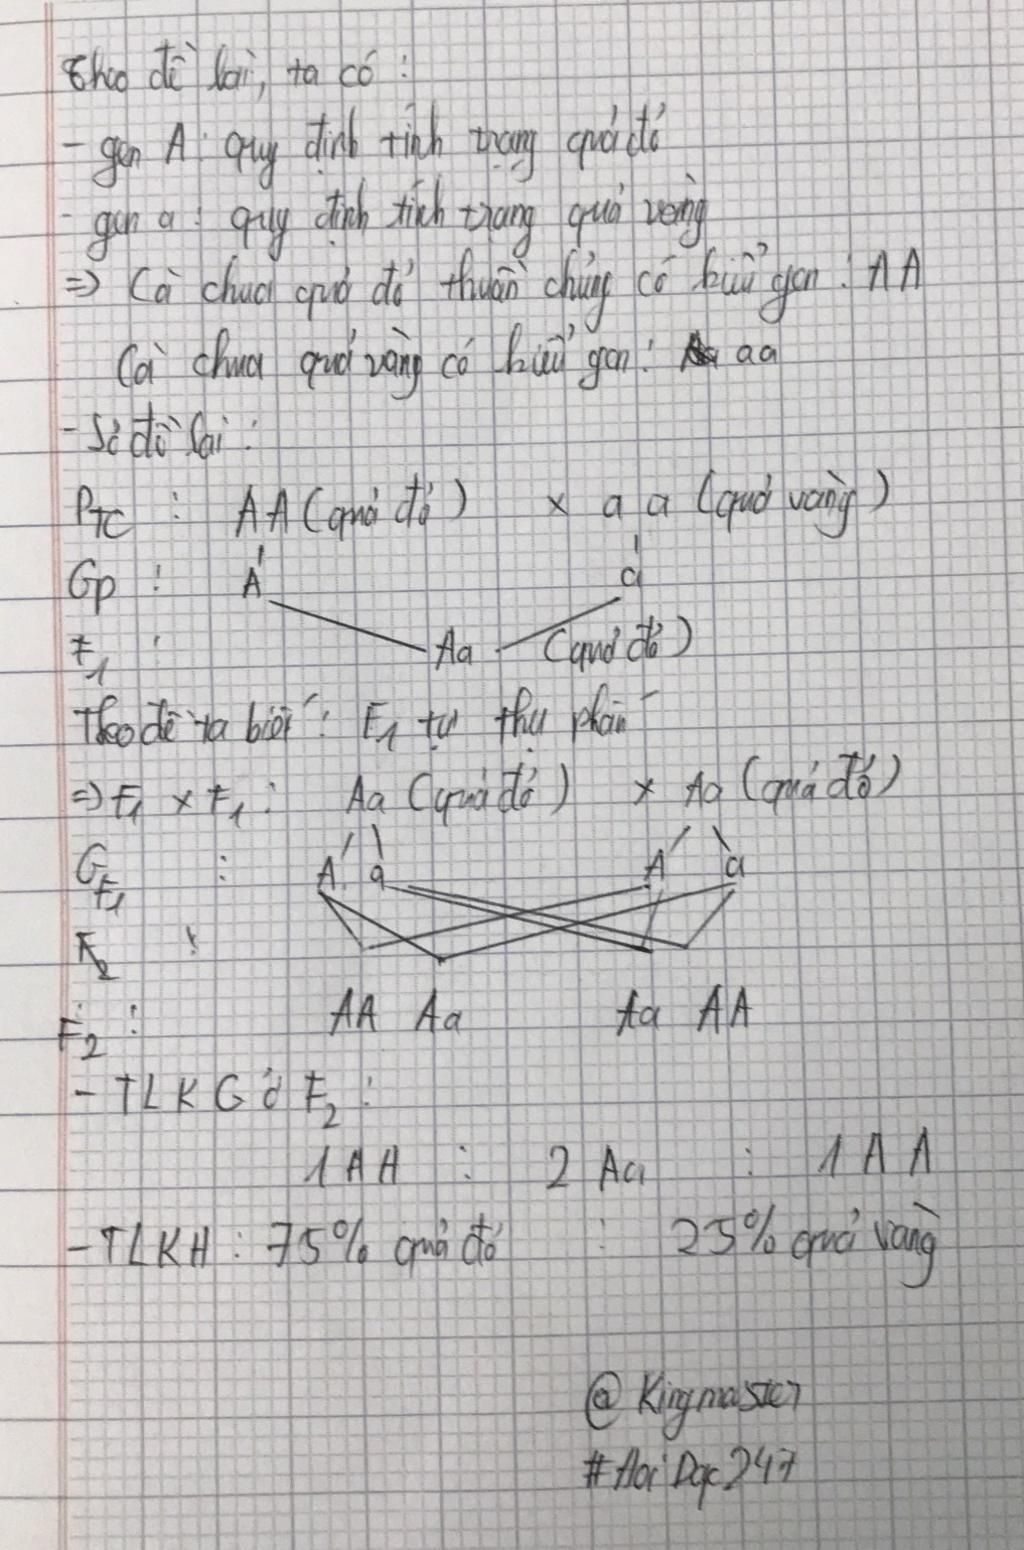 Theo đề bài, ta có :
- gen A : quy định tính trạng quả đỏ
- gen a : quy định tính trạng quả vàng
=> Cà chua quả đỏ thuần chủng có kiểu gen : AA
Cà chua quả vàng có kiểu gen : aa
- Sơ đồ lai :
PTC : AA (quả đỏ) x aa (quả vàng)
Gp : A a
F1 : Aa (quả đỏ)
Theo đề ta biết : F1 tự thụ phấn
=> F1 x F1 : Aa (quả đỏ) x Aa (quả đỏ)
GF1 : A a A a
F2 :
F2 : AA Aa Aa AA
- TLKG ở F2 :
1AA : 2 Aa : 1AA
- TLKH : 75% quả đỏ : 25% quả vàng
@Kingmaster
#HoiDap247